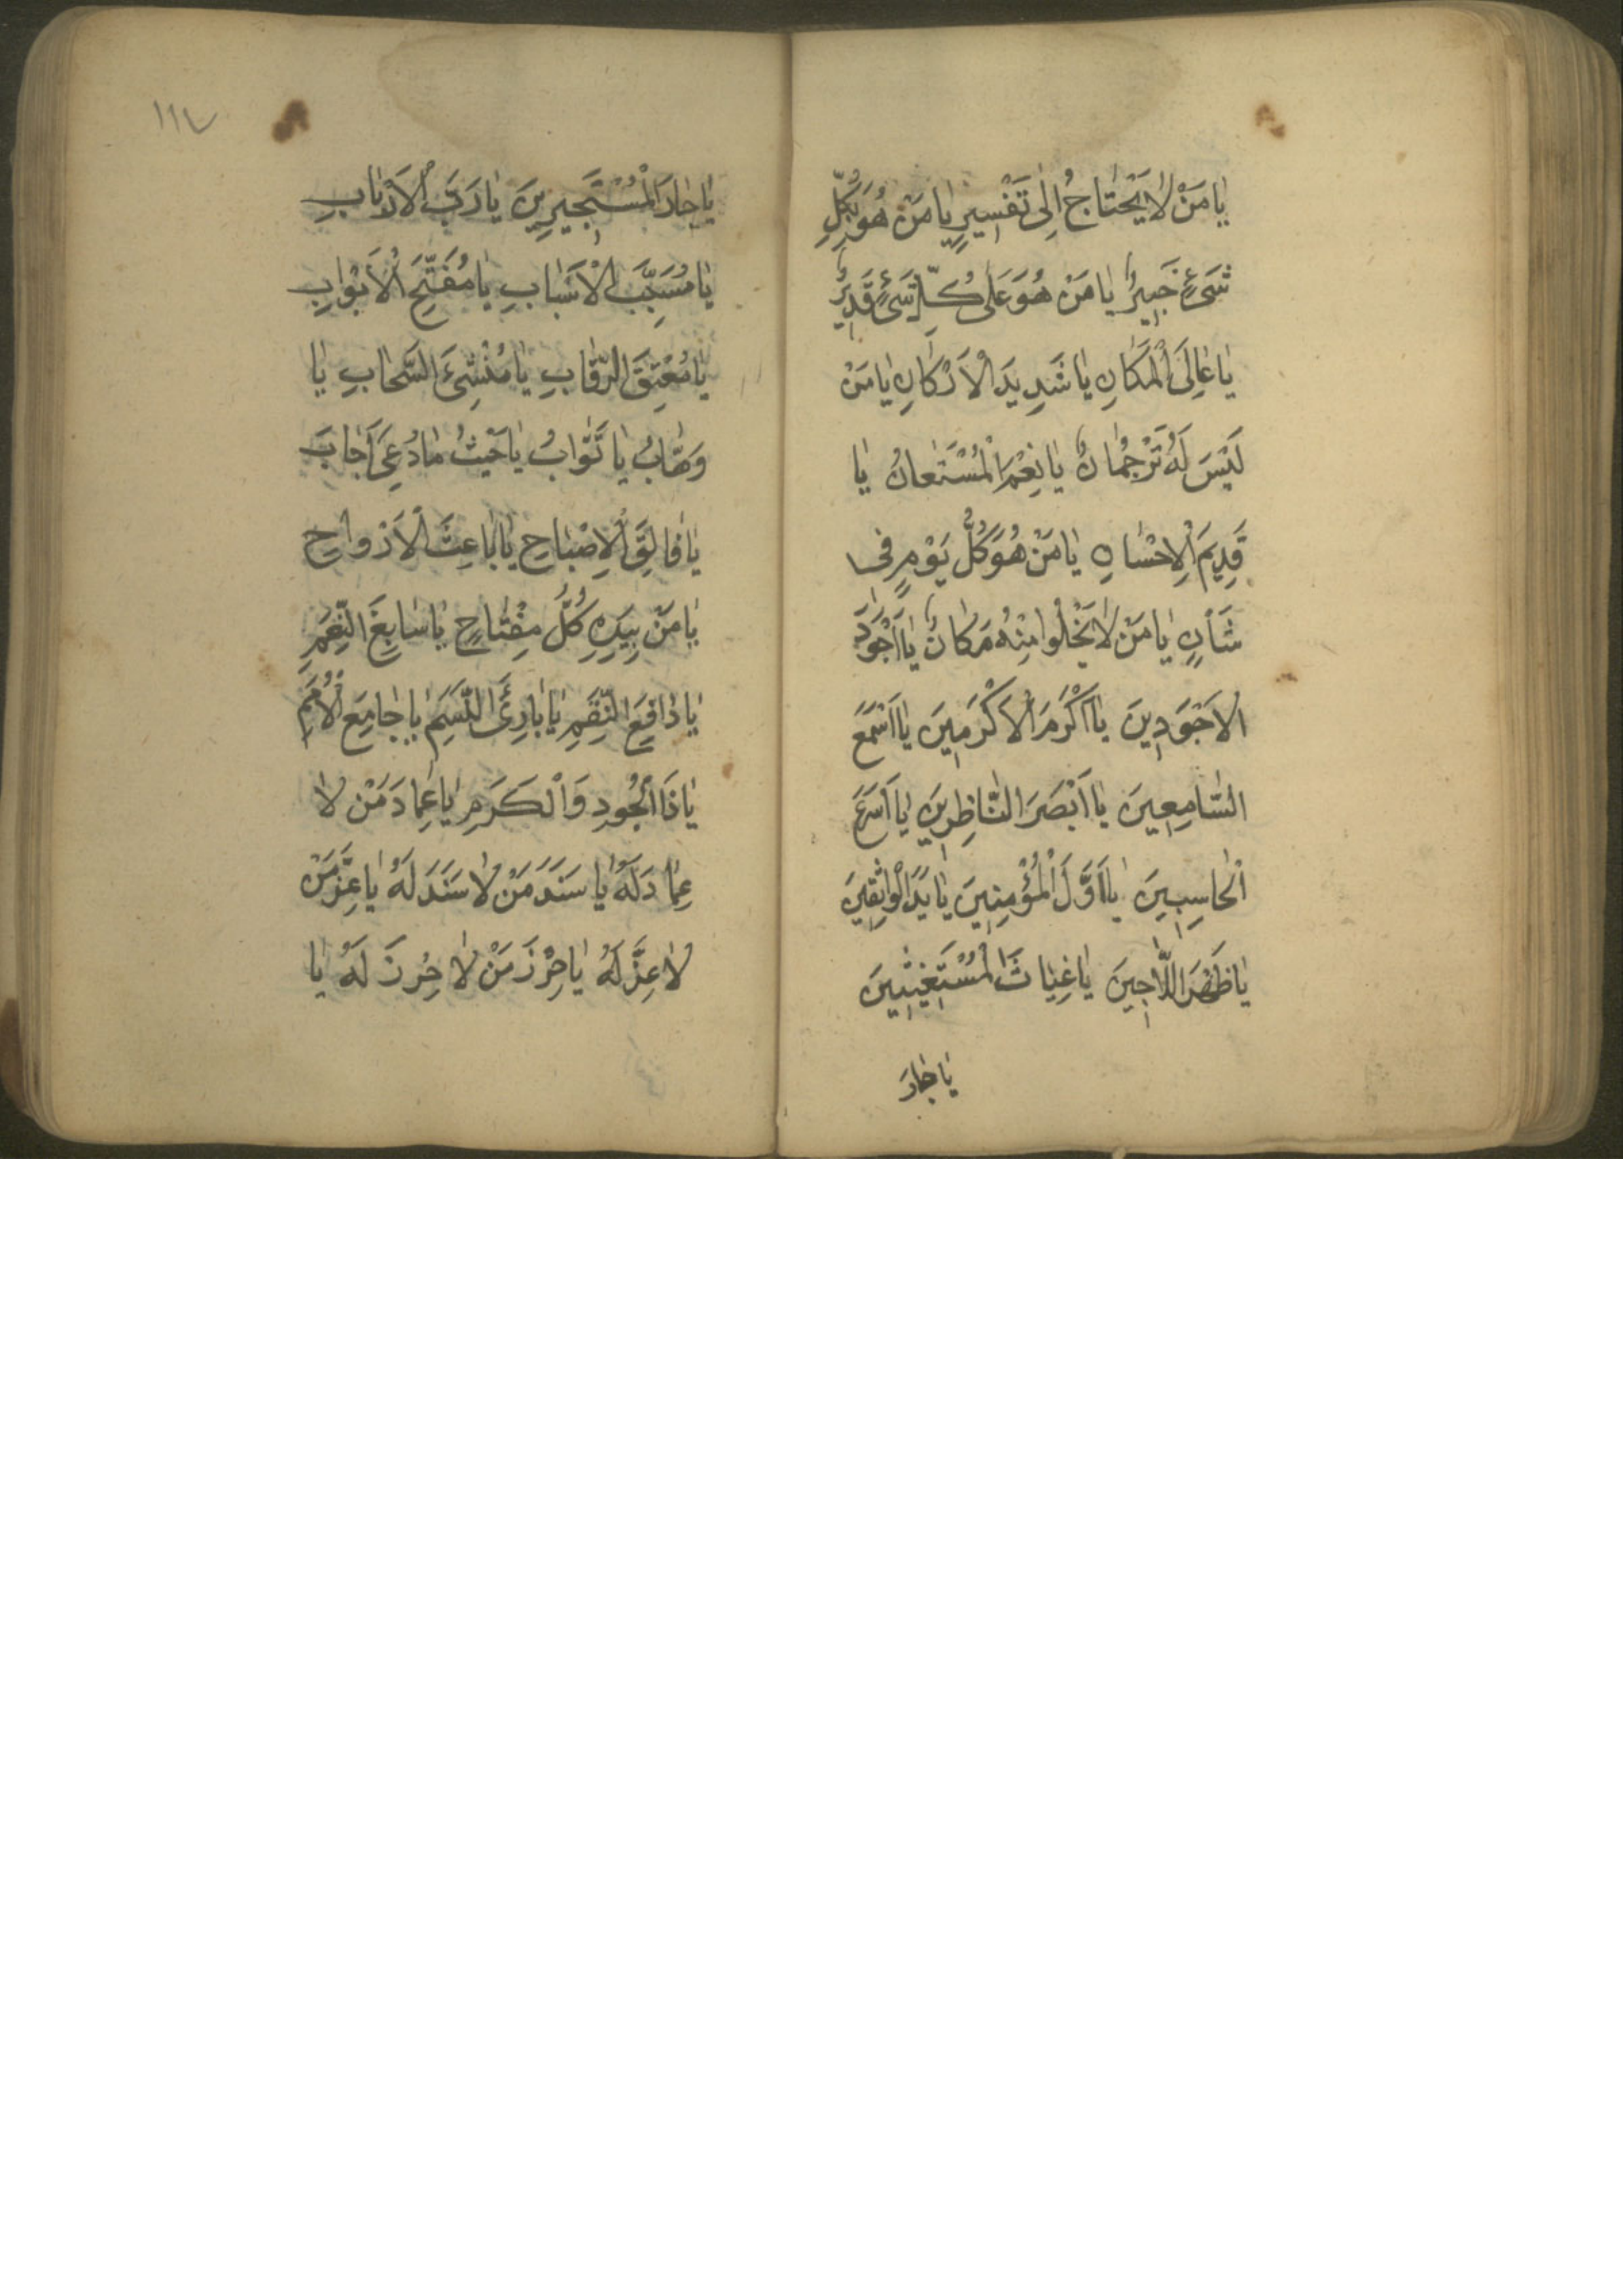 يٰا مَنْ لٰا يَحْتٰاجُ اِلىٰ تَفْسِيرٍ يٰا مَنْ هُوَ بِكُلِّ
شَىْءٍ خَبِيرٌ يٰا مَنْ هُوَ عَلىٰ كُلِّ شَىْءٍ قَدِيرٌ
يٰا عٰالِىَ الْمَكٰانِ يٰا شَدِيدَ الْاَرْكٰانِ يٰا مَنْ
لَيْسَ لَهُ تَرْجُمٰانٌ يٰا نِعْمَ الْمُسْتَعٰانُ يٰا
قَدِيمَ الْاِحْسٰانِ يٰا مَنْ هُوَ كُلَّ يَوْمٍ فى
شَأْنٍ يٰا مَنْ لٰا يَخْلُوا مِنْهُ مَكٰانٌ يٰا اَجْوَدَ
الْاَجْوَدِينَ يٰا اَكْرَمَ الْاَكْرَمِينَ يٰا اَسْمَعَ
السّٰامِعِينَ يٰا اَبْصَرَ النّٰاظِرِينَ يٰا اَسْرَعَ
الْحٰاسِبِينَ يٰا اَوَّلَ الْمُؤْمِنِينَ يٰا يَدَ الْوٰاثِقِينَ
يٰا ظَهْرَ اللّٰاجِينَ يٰا غِيٰاثَ الْمُسْتَغِيثِينَ
يٰا جٰارَ
١١٧
يٰا جٰارَ الْمُسْتَجِيرِينَ يٰا رَبَّ الْاَرْبٰابِ
يٰا مُسَبِّبَ الْاَسْبٰابِ يٰا مُفَتِّحَ الْاَبْوٰابِ
يٰا مُعْتِقَ الرِّقٰابِ يٰا مُنْشِئَ السَّحٰابِ يٰا
وَهّٰابُ يٰا تَوّٰابُ يٰا حَيْثُ مٰا دُعِىَ اَجٰابَ
يٰا فٰالِقَ الْاِصْبٰاحِ يٰا بٰاعِثَ الْاَرْوٰاحِ
يٰا مَنْ بِيَدِهِ كُلُّ مِفْتٰاحٍ يٰا سٰابِغَ النِّعَمِ
يٰا دٰافِعَ النِّقَمِ يٰا بٰارِئَ النَّسَمِ يٰا جٰامِعَ الْاُمَمِ
يٰا ذَا الْجُودِ وَالْكَرَمِ يٰا عِمٰادَ مَنْ لٰا
عِمٰادَ لَهُ يٰا سَنَدَ مَنْ لٰا سَنَدَ لَهُ يٰا عِزَّ مَنْ
لٰا عِزَّ لَهُ يٰا حِرْزَ مَنْ لٰا حِرْزَ لَهُ يٰا